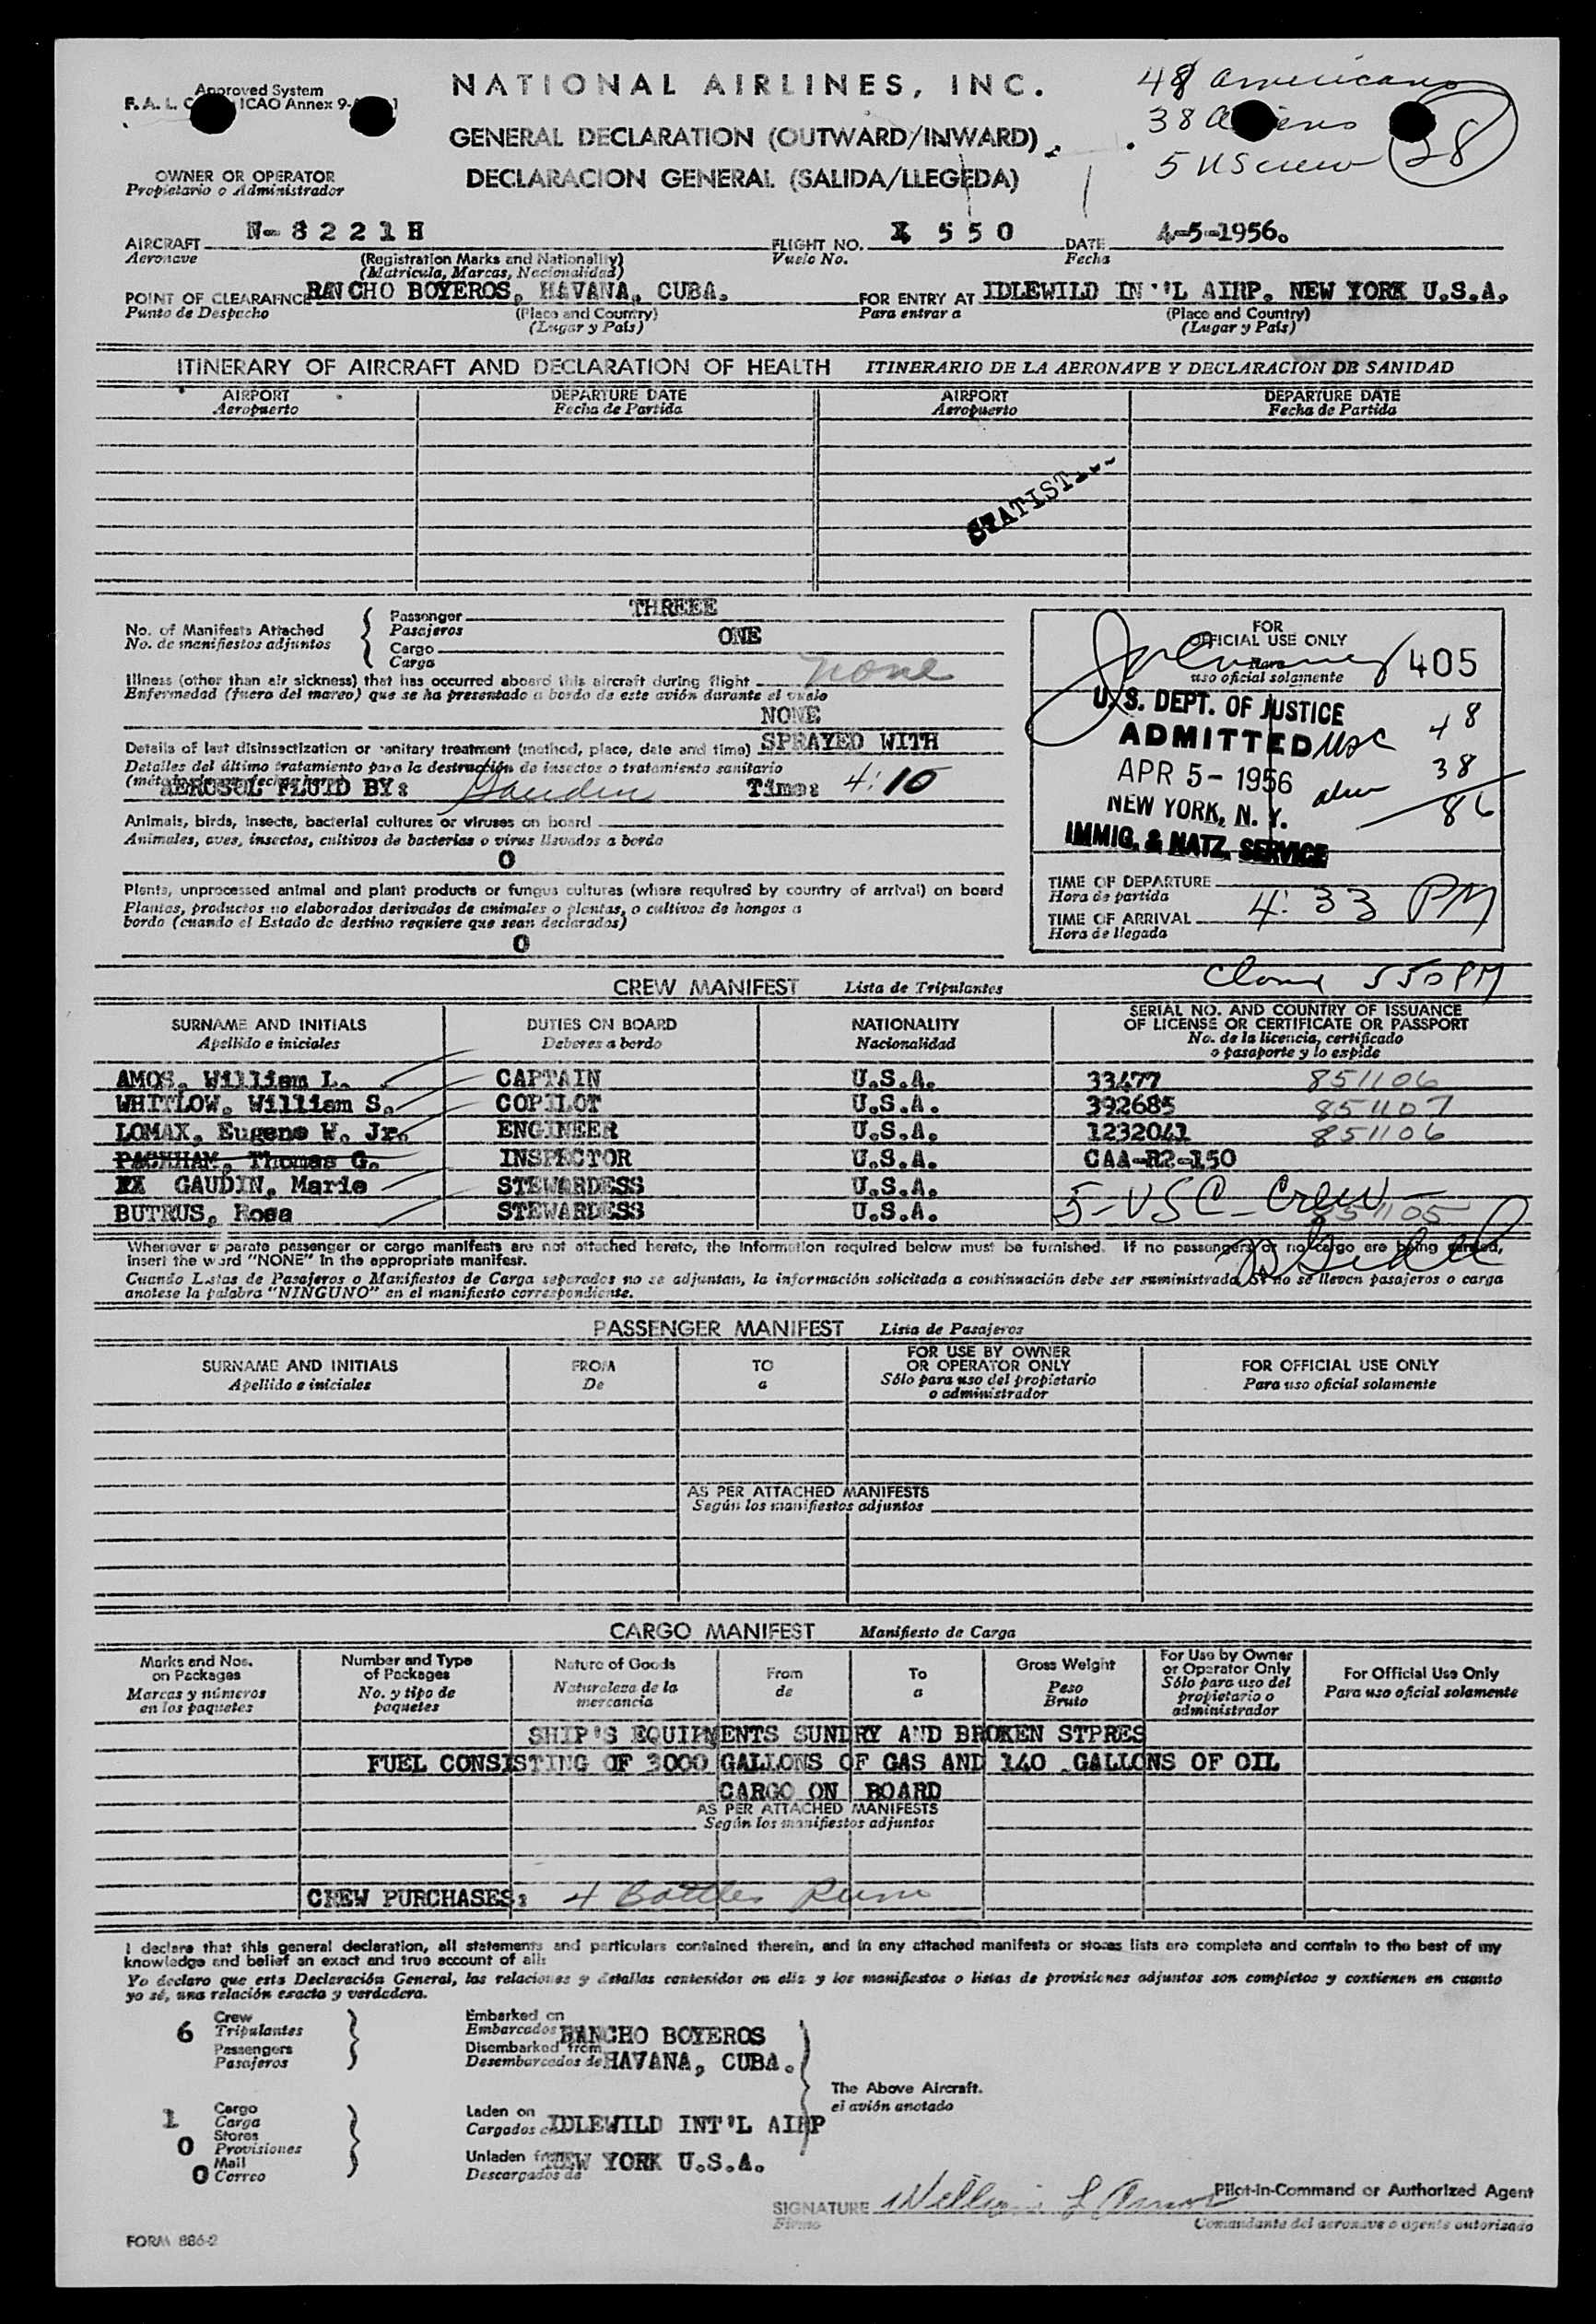 Approved System
F. A. L. ICAO Annex 9-
NATIONAL AIRLINES, INC.
48 americans
38
5 US crew
28
GENERAL DECLARATION (OUTWARD/INWARD)
DECLARACION GENERAL (SALIDA/LLEGEDA)
OWNER OR OPERATOR
Propietario o Administrador
AIRCRAFT N-8221H FLIGHT NO. 550 DATE 4-5-1956.
Aeronave (Registration Marks and Nationality) Vuelo No. Fecha
(Matricula, Marcas, Nacionalidad)
POINT OF CLEARAFNCE RANCHO BOYEROS, HAVANA, CUBA. FOR ENTRY AT IDLEWILD IN''L AIRP. NEW YORK U.S.A.
Punto de Despacho (Place and Country) Para entrar a (Place and Country)
(Lugar y País) (Lugar y País)
ITINERARY OF AIRCRAFT AND DECLARATION OF HEALTH ITINERARIO DE LA AERONAVE Y DECLARACION DE SANIDAD
AIRPORT DEPARTURE DATE AIRPORT DEPARTURE DATE
Aeropuerto Fecha de Partida Aeropuerto Fecha de Partida
STATIST
No. of Manifests Attached Passenger THREEE
No. de manifiestos adjuntos Pasajeros
Cargo ONE
Carga
Illness (other than air sickness) that has occurred aboard this aircraft during flight none
Enfermedad (fuera del mareo) que se ha presentado a bordo de este avión durante el vuelo
NONE
Details of last disinsectization or sanitary treatment (method, place, date and time) SPRAYED WITH
Detalles del último tratamiento para la destrucción de insectos o tratamiento sanitario
AEROSOL FLUID BY: Gaudin Time: 4:10
Animals, birds, insects, bacterial cultures or viruses on board
Animales, aves, insectos, cultivos de bacterias o virus llevados a bordo
0
Plants, unprocessed animal and plant products or fungus cultures (where required by country of arrival) on board
Plantas, productos no elaborados derivados de animales o plantas, o cultivos de hongos a
bordo (cuando el Estado de destino requiere que sean declarados)
0
FOR
OFFICIAL USE ONLY
Para
uso oficial solamente
405
U. S. DEPT. OF JUSTICE
ADMITTED USC 48
APR 5- 1956 38
NEW YORK, N. Y. 86
IMMIG. & NATZ. SERVICE
TIME OF DEPARTURE
Hora de partida
TIME OF ARRIVAL 4:33 PM
Hora de llegada
550 PM
CREW MANIFEST Lista de Tripulantes
SURNAME AND INITIALS DUTIES ON BOARD NATIONALITY SERIAL NO. AND COUNTRY OF ISSUANCE
OF LICENSE OR CERTIFICATE OR PASSPORT
Apellido e iniciales Deberes a bordo Nacionalidad No. de la licencia, certificado
o pasaporte y lo expide
AMOS, William L. CAPTAIN U.S.A. 33477 851106
WHITLOW, William S. COPILOT U.S.A. 392685 851107
LOMAX, Eugene W. Jr. ENGINEER U.S.A. 1232041 851106
PACKHAM, Thomas G. INSPECTOR U.S.A. CAA-R2-150
XX GAUDIN, Marie STEWARDESS U.S.A. 5-USC-Crew
BUTRUS, Rosa STEWARDESS U.S.A. 851105
Whenever separate passenger or cargo manifests are not attached hereto, the information required below must be furnished. If no passengers or no cargo are being carried,
insert the word "NONE" in the appropriate manifest.
Cuando Listas de Pasajeros o Manifiestos de Carga separados no se adjuntan, la información solicitada a continuación debe ser suministrada. Si no se lleven pasajeros o carga
anotese la palabra "NINGUNO" en el manifiesto correspondiente.
PASSENGER MANIFEST Lista de Pasajeros
SURNAME AND INITIALS FROM TO FOR USE BY OWNER
OR OPERATOR ONLY FOR OFFICIAL USE ONLY
Apellido e iniciales De a Sólo para uso del propietario
o administrador Para uso oficial solamente
AS PER ATTACHED MANIFESTS
Según los manifiestos adjuntos
CARGO MANIFEST Manifiesto de Carga
Marks and Nos.
on Packages
Marcas y números
en los paquetes
Number and Type
of Packages
No. y tipo de
paquetes
Nature of Goods
Naturaleza de la
mercancia
From
de
To
a
Gross Weight
Peso
Bruto
For Use by Owner
or Operator Only
Sólo para uso del
propietario o
administrador
For Official Use Only
Para uso oficial solamente
SHIP'S EQUIPMENTS SUNDRY AND BROKEN STPRES
FUEL CONSISTING OF 3000 GALLONS OF GAS AND 140 .GALLONS OF OIL
CARGO ON BOARD
AS PER ATTACHED MANIFESTS
Según los manifiestos adjuntos
CREW PURCHASES: 4 Bottles Rum
I declare that this general declaration, all statements and particulars contained therein, and in any attached manifests or stores lists are complete and contain to the best of my
knowledge and belief an exact and true account of all:
Yo declaro que esta Declaración General, las relaciones y detalles contenidos en ella y los manifiestos o listas de provisiones adjuntos son completos y contienen en cuanto
yo sé, una relación exacta y verdadera.
6 Crew
Tripulantes
Passengers
Pasajeros
Embarked on
Embarcados RANCHO BOYEROS
Disembarked from
Desembarcados de HAVANA, CUBA.
The Above Aircraft.
el avión anotado
1 Cargo
Carga
0 Stores
Provisiones
0 Mail
Correo
Laden on
Cargados IDLEWILD INT'L AIRP
Unladen from NEW YORK U.S.A.
Descargados de
SIGNATURE William L Amos Pilot-in-Command or Authorized Agent
Firma Comandante del aeronave o agente autorizado
FORM 886-2